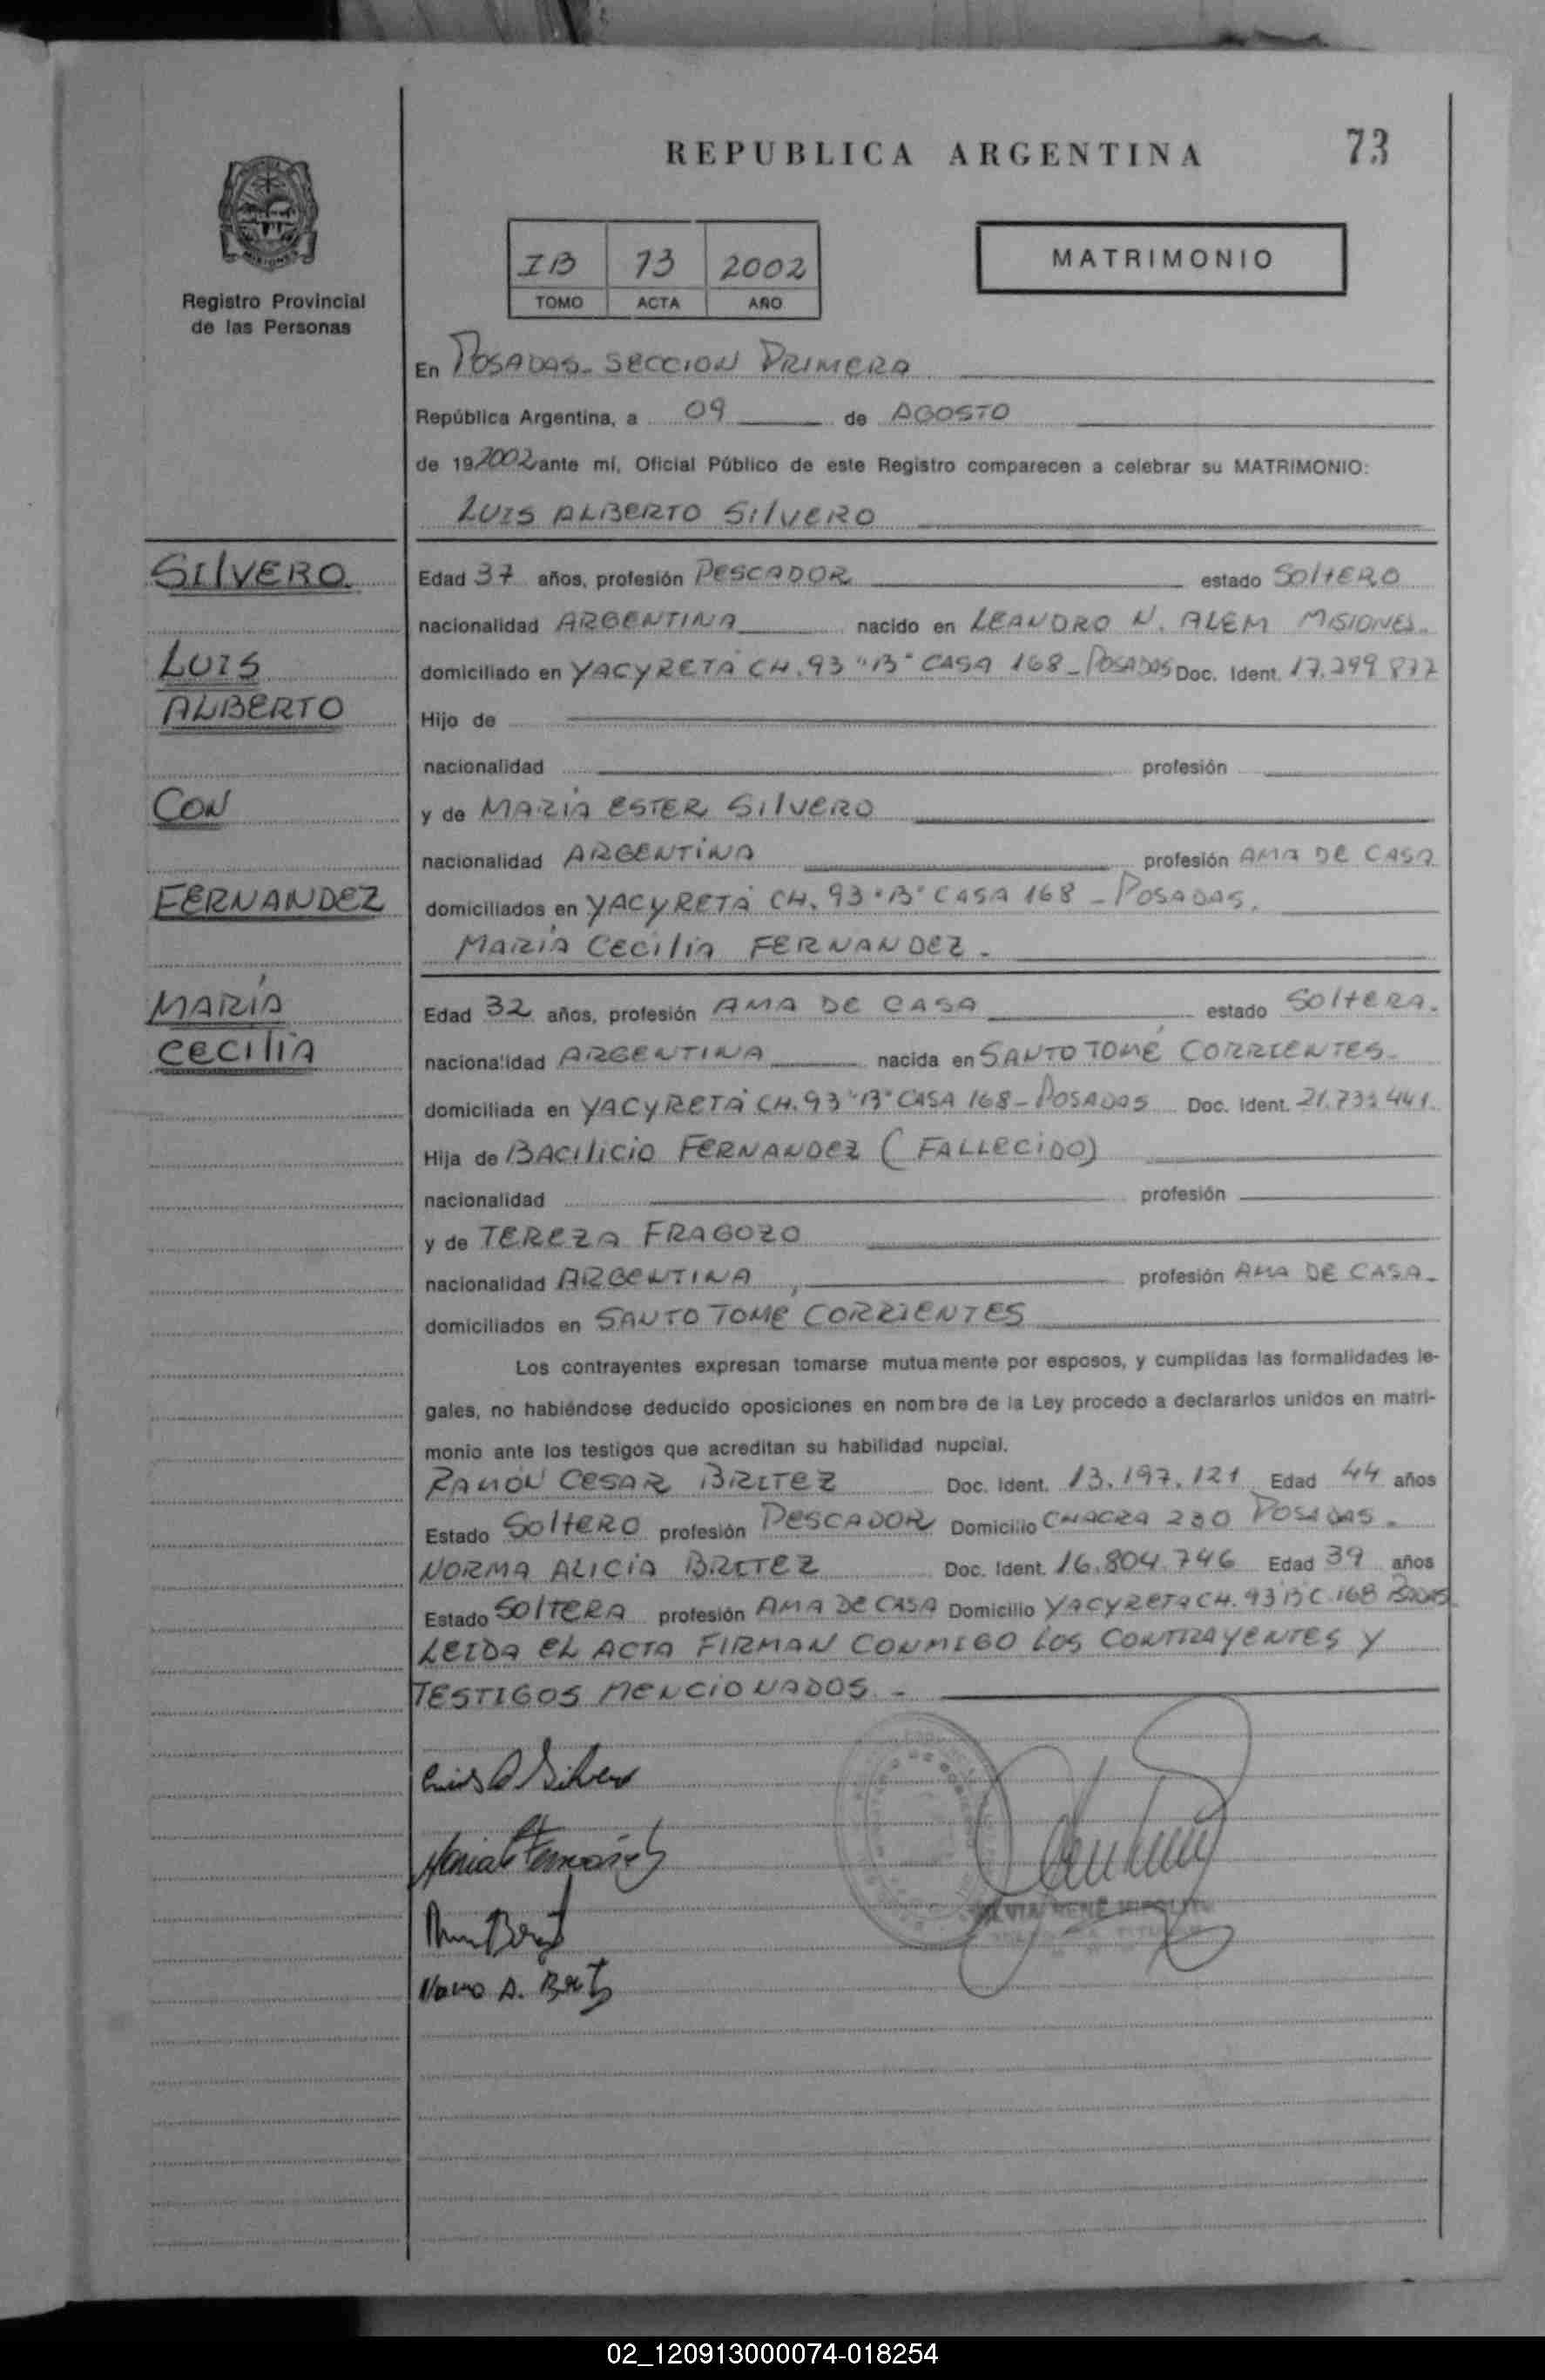 REPUBLICA ARGENTINA
73
MISIONES
Registro Provincial
de las Personas
IB 73 2002
TOMO ACTA AÑO
MATRIMONIO
En POSADAS - SECCION PRIMERA
República Argentina, a 09 de AGOSTO
de 192002 ante mí, Oficial Público de este Registro comparecen a celebrar su MATRIMONIO:
LUIS ALBERTO SILVERO
SILVERO
LUIS
ALBERTO
CON
FERNANDEZ
MARÍA
CECILIA
Edad 37 años, profesión PESCADOR estado SOLTERO
nacionalidad ARGENTINA nacido en LEANDRO N. ALEM MISIONES.
domiciliado en YACYRETÁ CH. 93 "B" CASA 168 - POSADAS Doc. Ident. 17.299.877
Hijo de
nacionalidad profesión
y de MARÍA ESTER SILVERO
nacionalidad ARGENTINA profesión AMA DE CASA
domiciliados en YACYRETÁ CH. 93 "B" CASA 168 - POSADAS.
MARÍA CECILIA FERNANDEZ -
Edad 32 años, profesión AMA DE CASA estado SOLTERA.
nacionalidad ARGENTINA nacida en SANTO TOMÉ CORRIENTES -
domiciliada en YACYRETÁ CH. 93 "B" CASA 168 - POSADAS Doc. Ident.
Hija de BACILICIO FERNANDEZ (FALLECIDO)
nacionalidad profesión
y de TEREZA FRAGOZO
nacionalidad ARGENTINA profesión AMA DE CASA -
domiciliados en SANTO TOMÉ CORRIENTES
Los contrayentes expresan tomarse mutuamente por esposos, y cumplidas las formalidades le-
gales, no habiéndose deducido oposiciones en nombre de la Ley procedo a declararlos unidos en matri-
monio ante los testigos que acreditan su habilidad nupcial.
RAMÓN CESAR BRITEZ Doc. Ident. 13.197.121 Edad 44 años
Estado SOLTERO profesión PESCADOR Domicilio CHACRA 230 POSADAS -
NORMA ALICIA BRITEZ Doc. Ident. 16.804.746 Edad 39 años
Estado SOLTERA profesión AMA DE CASA Domicilio YACYRETA CH. 93 B C. 168
LEIDA EL ACTA FIRMAN CONMIGO LOS CONTRAYENTES Y
TESTIGOS MENCIONADOS. -
Luis A Silvero
Maria C Fernandez
Norma A. Britez
02_120913000074-018254